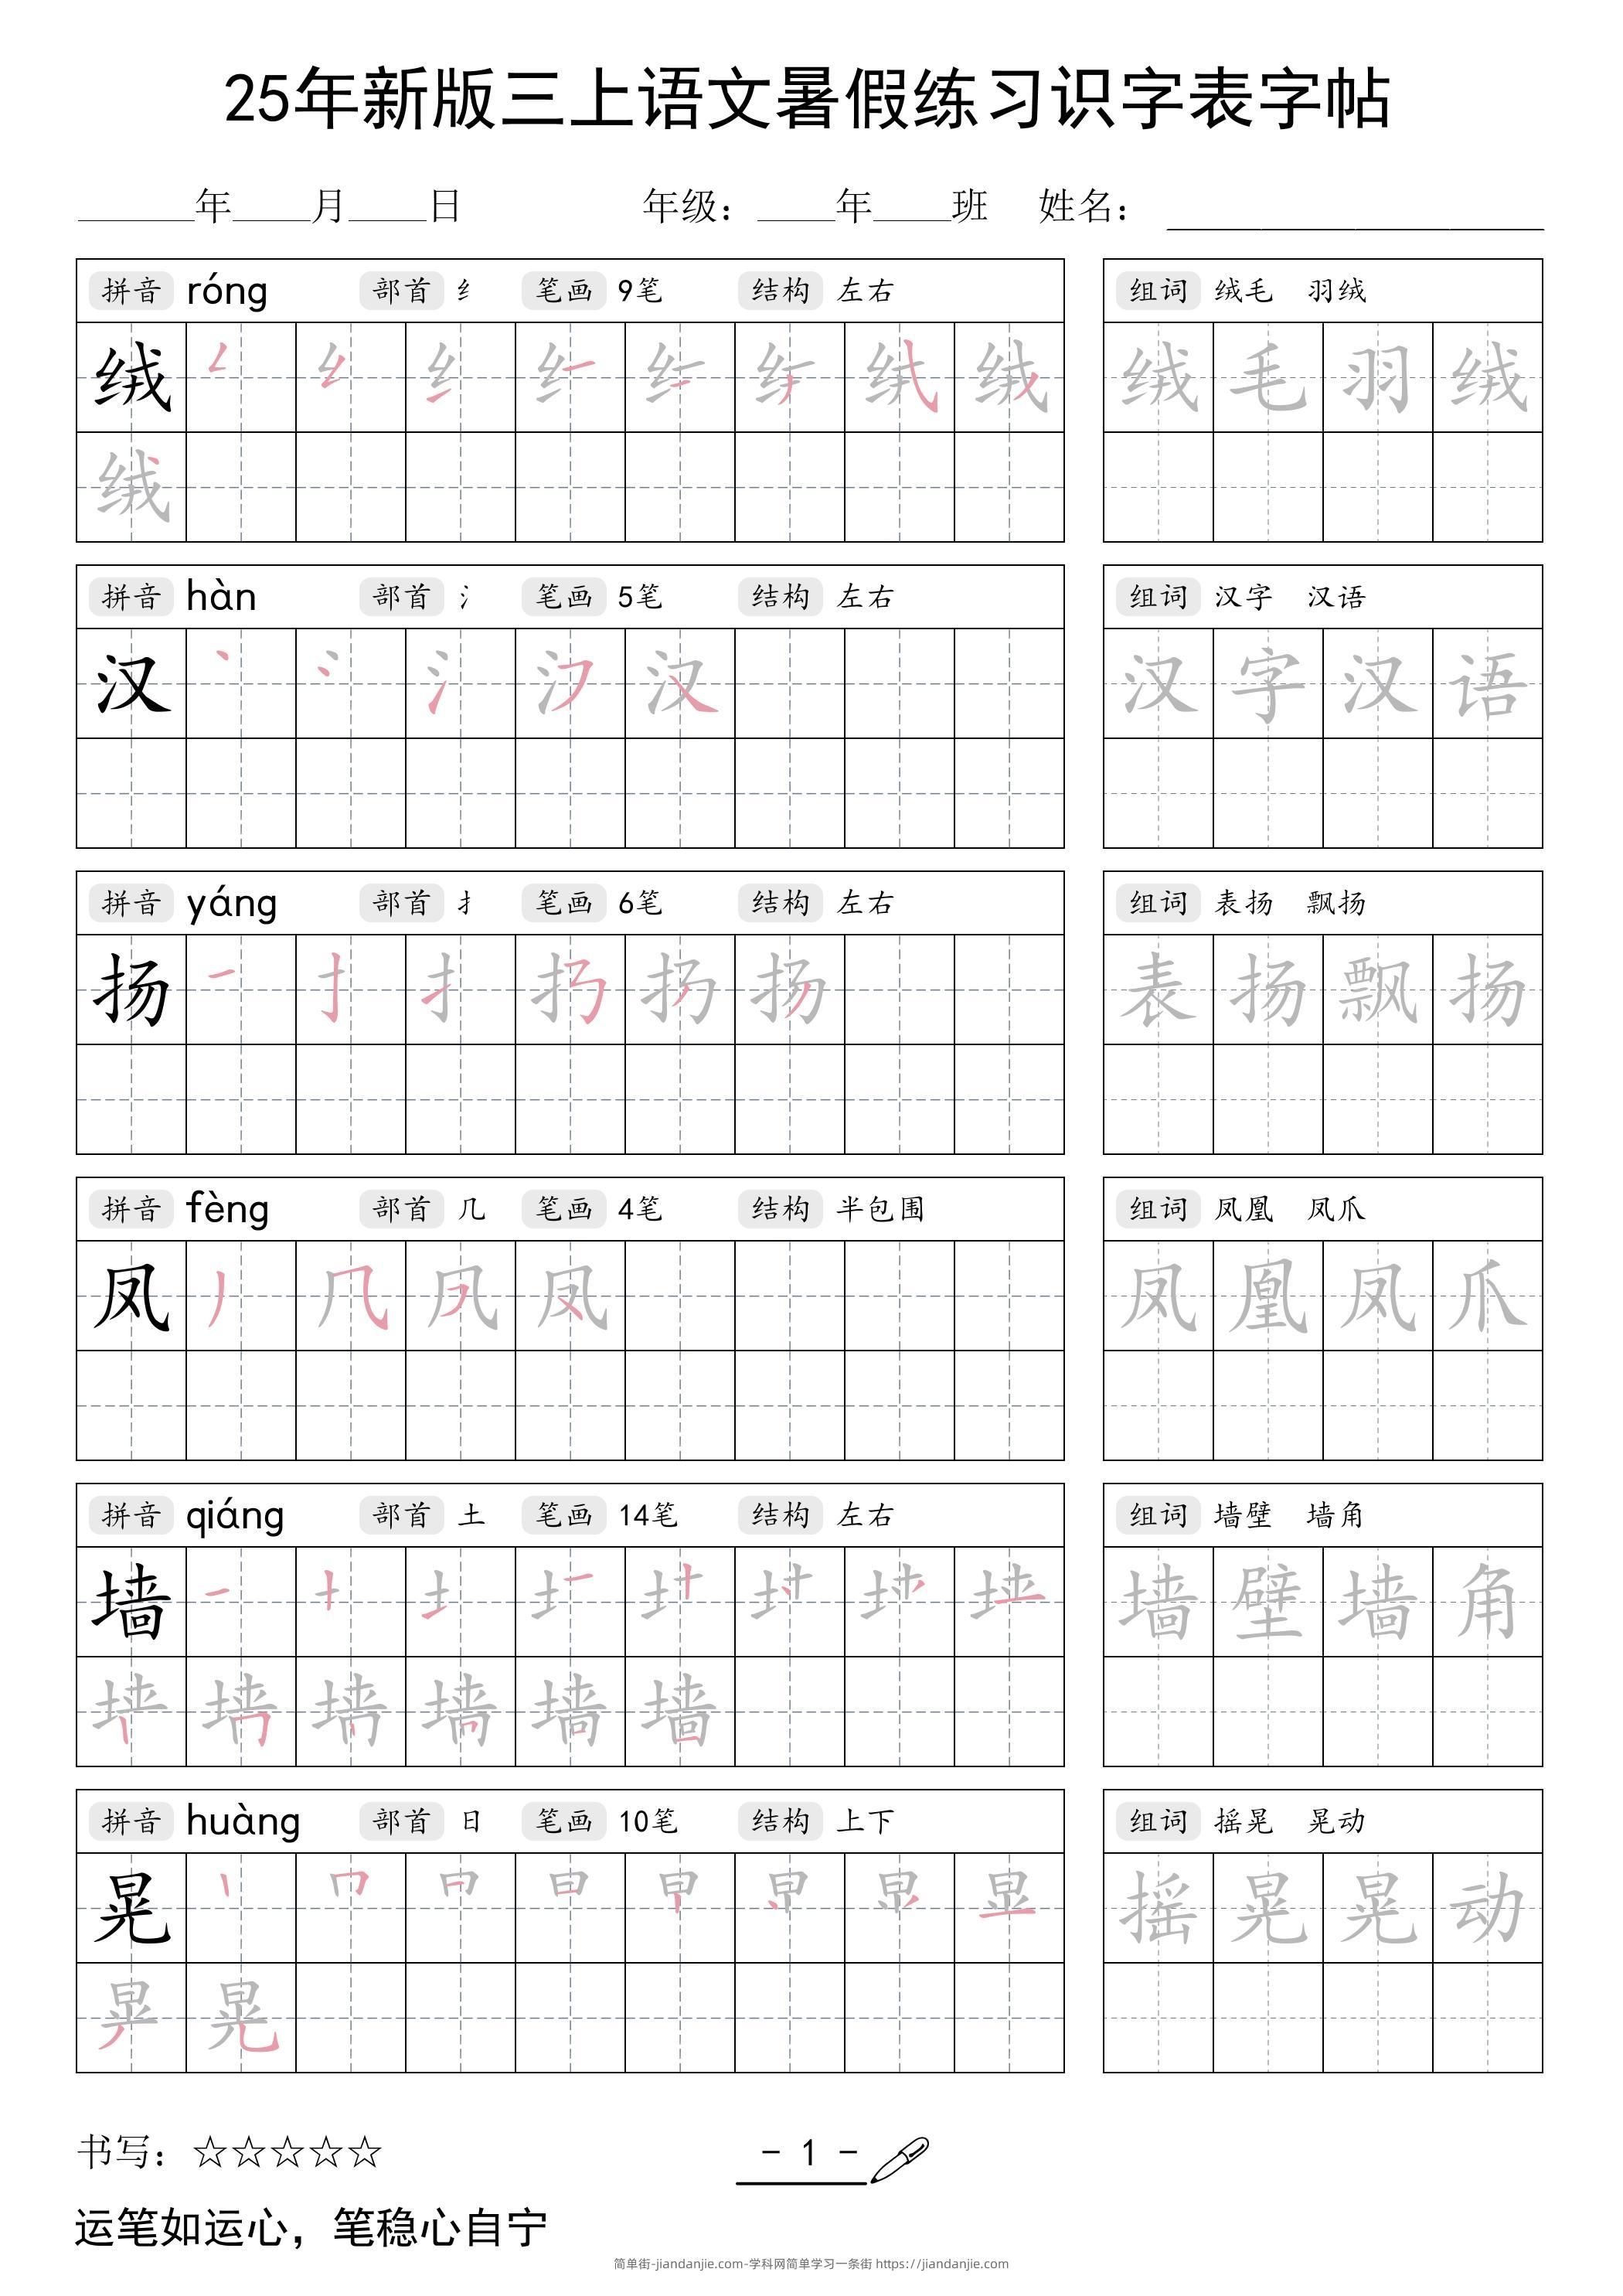 25年新版三上语文暑假练习识字表字帖
______年____月____日 年级：____年____班 姓名：____________________
拼音 róng 部首 纟 笔画 9笔 结构 左右 组词 绒毛 羽绒
绒 绒 毛 羽 绒
绒
拼音 hàn 部首 氵 笔画 5笔 结构 左右 组词 汉字 汉语
汉 汉 汉 字 汉 语
拼音 yáng 部首 扌 笔画 6笔 结构 左右 组词 表扬 飘扬
扬 扬 表 扬 飘 扬
拼音 fèng 部首 几 笔画 4笔 结构 半包围 组词 凤凰 凤爪
凤 凤 凤 凰 凤 爪
拼音 qiáng 部首 土 笔画 14笔 结构 左右 组词 墙壁 墙角
墙 墙 壁 墙 角
墙
拼音 huàng 部首 日 笔画 10笔 结构 上下 组词 摇晃 晃动
晃 摇 晃 晃 动
晃
书写：☆☆☆☆☆
- 1 -
运笔如运心，笔稳心自宁
简单街-jiandanjie.com-学科网简单学习一条街 https://jiandanjie.com